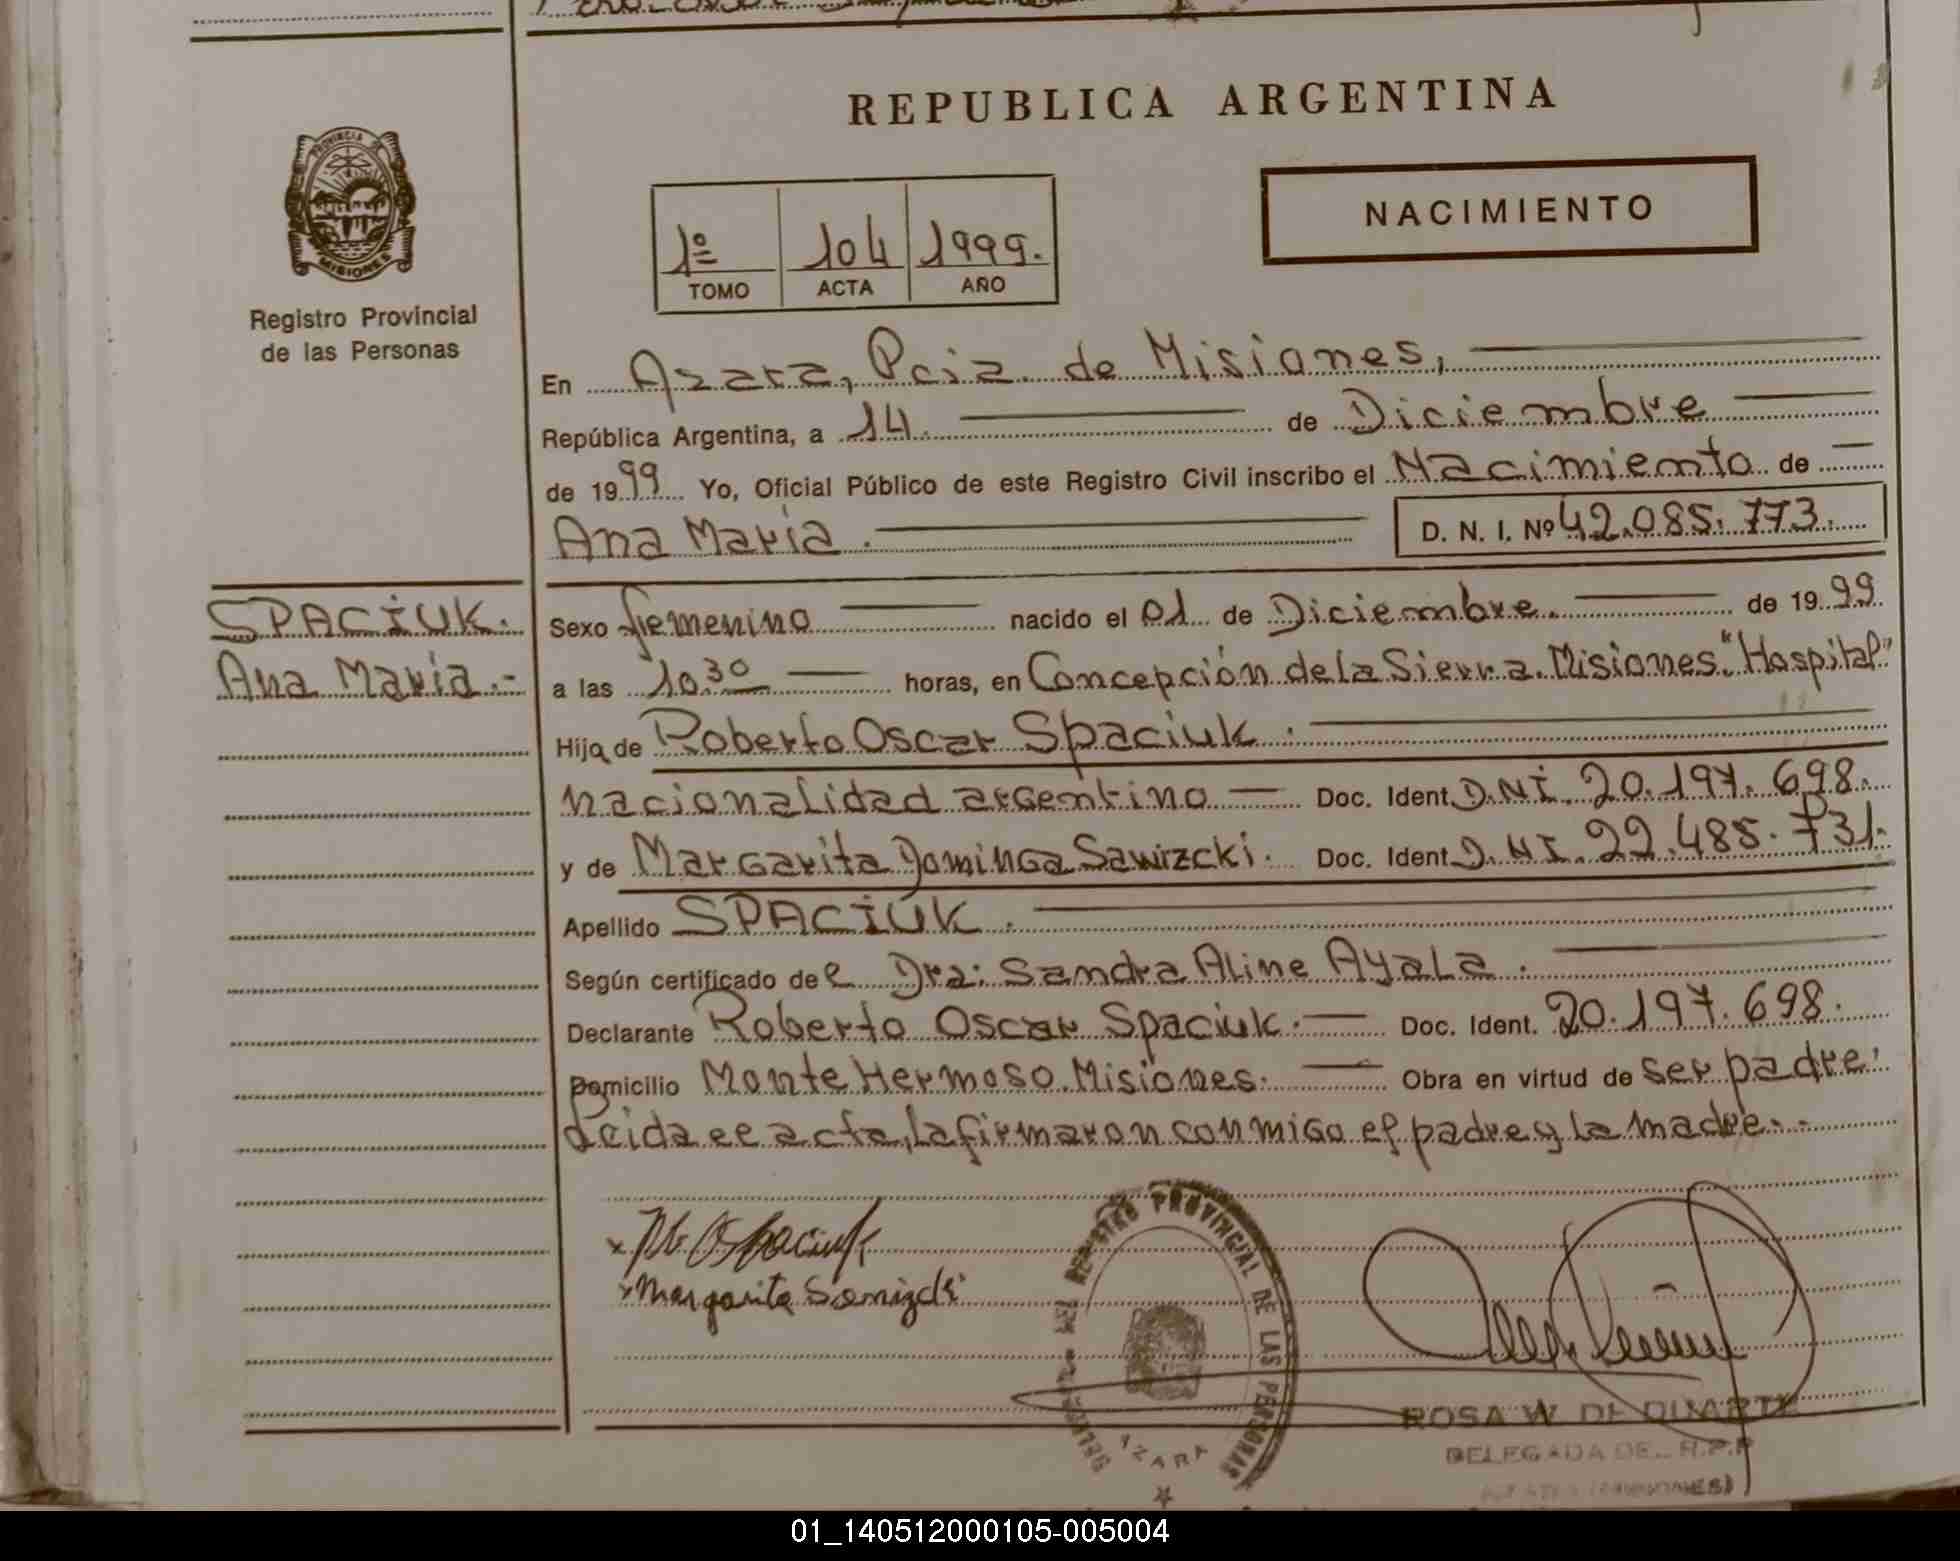 REPUBLICA ARGENTINA
PROVINCIA DE
MISIONES
Registro Provincial
de las Personas
1º 104 1999.
TOMO ACTA AÑO
NACIMIENTO
En Azara, Pcia. de Misiones,
República Argentina, a 14. de Diciembre
de 1999 Yo, Oficial Público de este Registro Civil inscribo el Nacimiento de
Ana María. D. N. I. Nº 42.085.773.
SPACIUK.
Ana María.-
Sexo femenino nacido el 01 de Diciembre. de 1999
a las 10.30 horas, en Concepción de la Sierra. Misiones. "Hospital"
Hija de Roberto Oscar Spaciuk.
nacionalidad argentino Doc. Ident. D.N.I. 20.197.698.
y de Margarita Dominga Sawizcki. Doc. Ident. D.N.I. 22.485.731.
Apellido SPACIUK.
Según certificado de Dra: Sandra Aline Ayala.
Declarante Roberto Oscar Spaciuk. Doc. Ident. 20.197.698.
Domicilio Monte Hermoso. Misiones. Obra en virtud de ser padre.
Leida el acta, la firmaron conmigo el padre y la madre.-
x Spaciuk
x Margarita
REGISTRO PROVINCIAL DE LAS PERSONAS
AZARA
ROSA W. DE DUARTE
DELEGADA DEL R.P.P
(MISIONES)
01_140512000105-005004